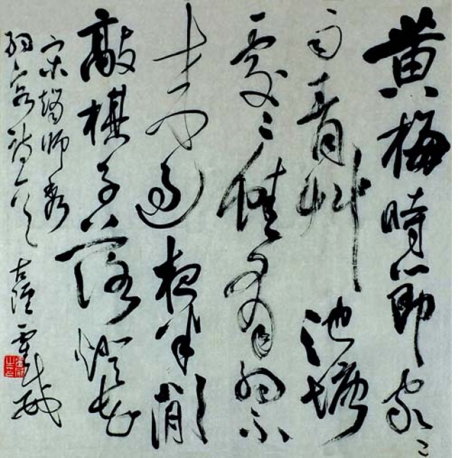 黄梅時節家〻
雨青艸池塘
處〻蛙有約不
來過夜半閒
敲棋子落燈花
宋趙師秀
約客詩